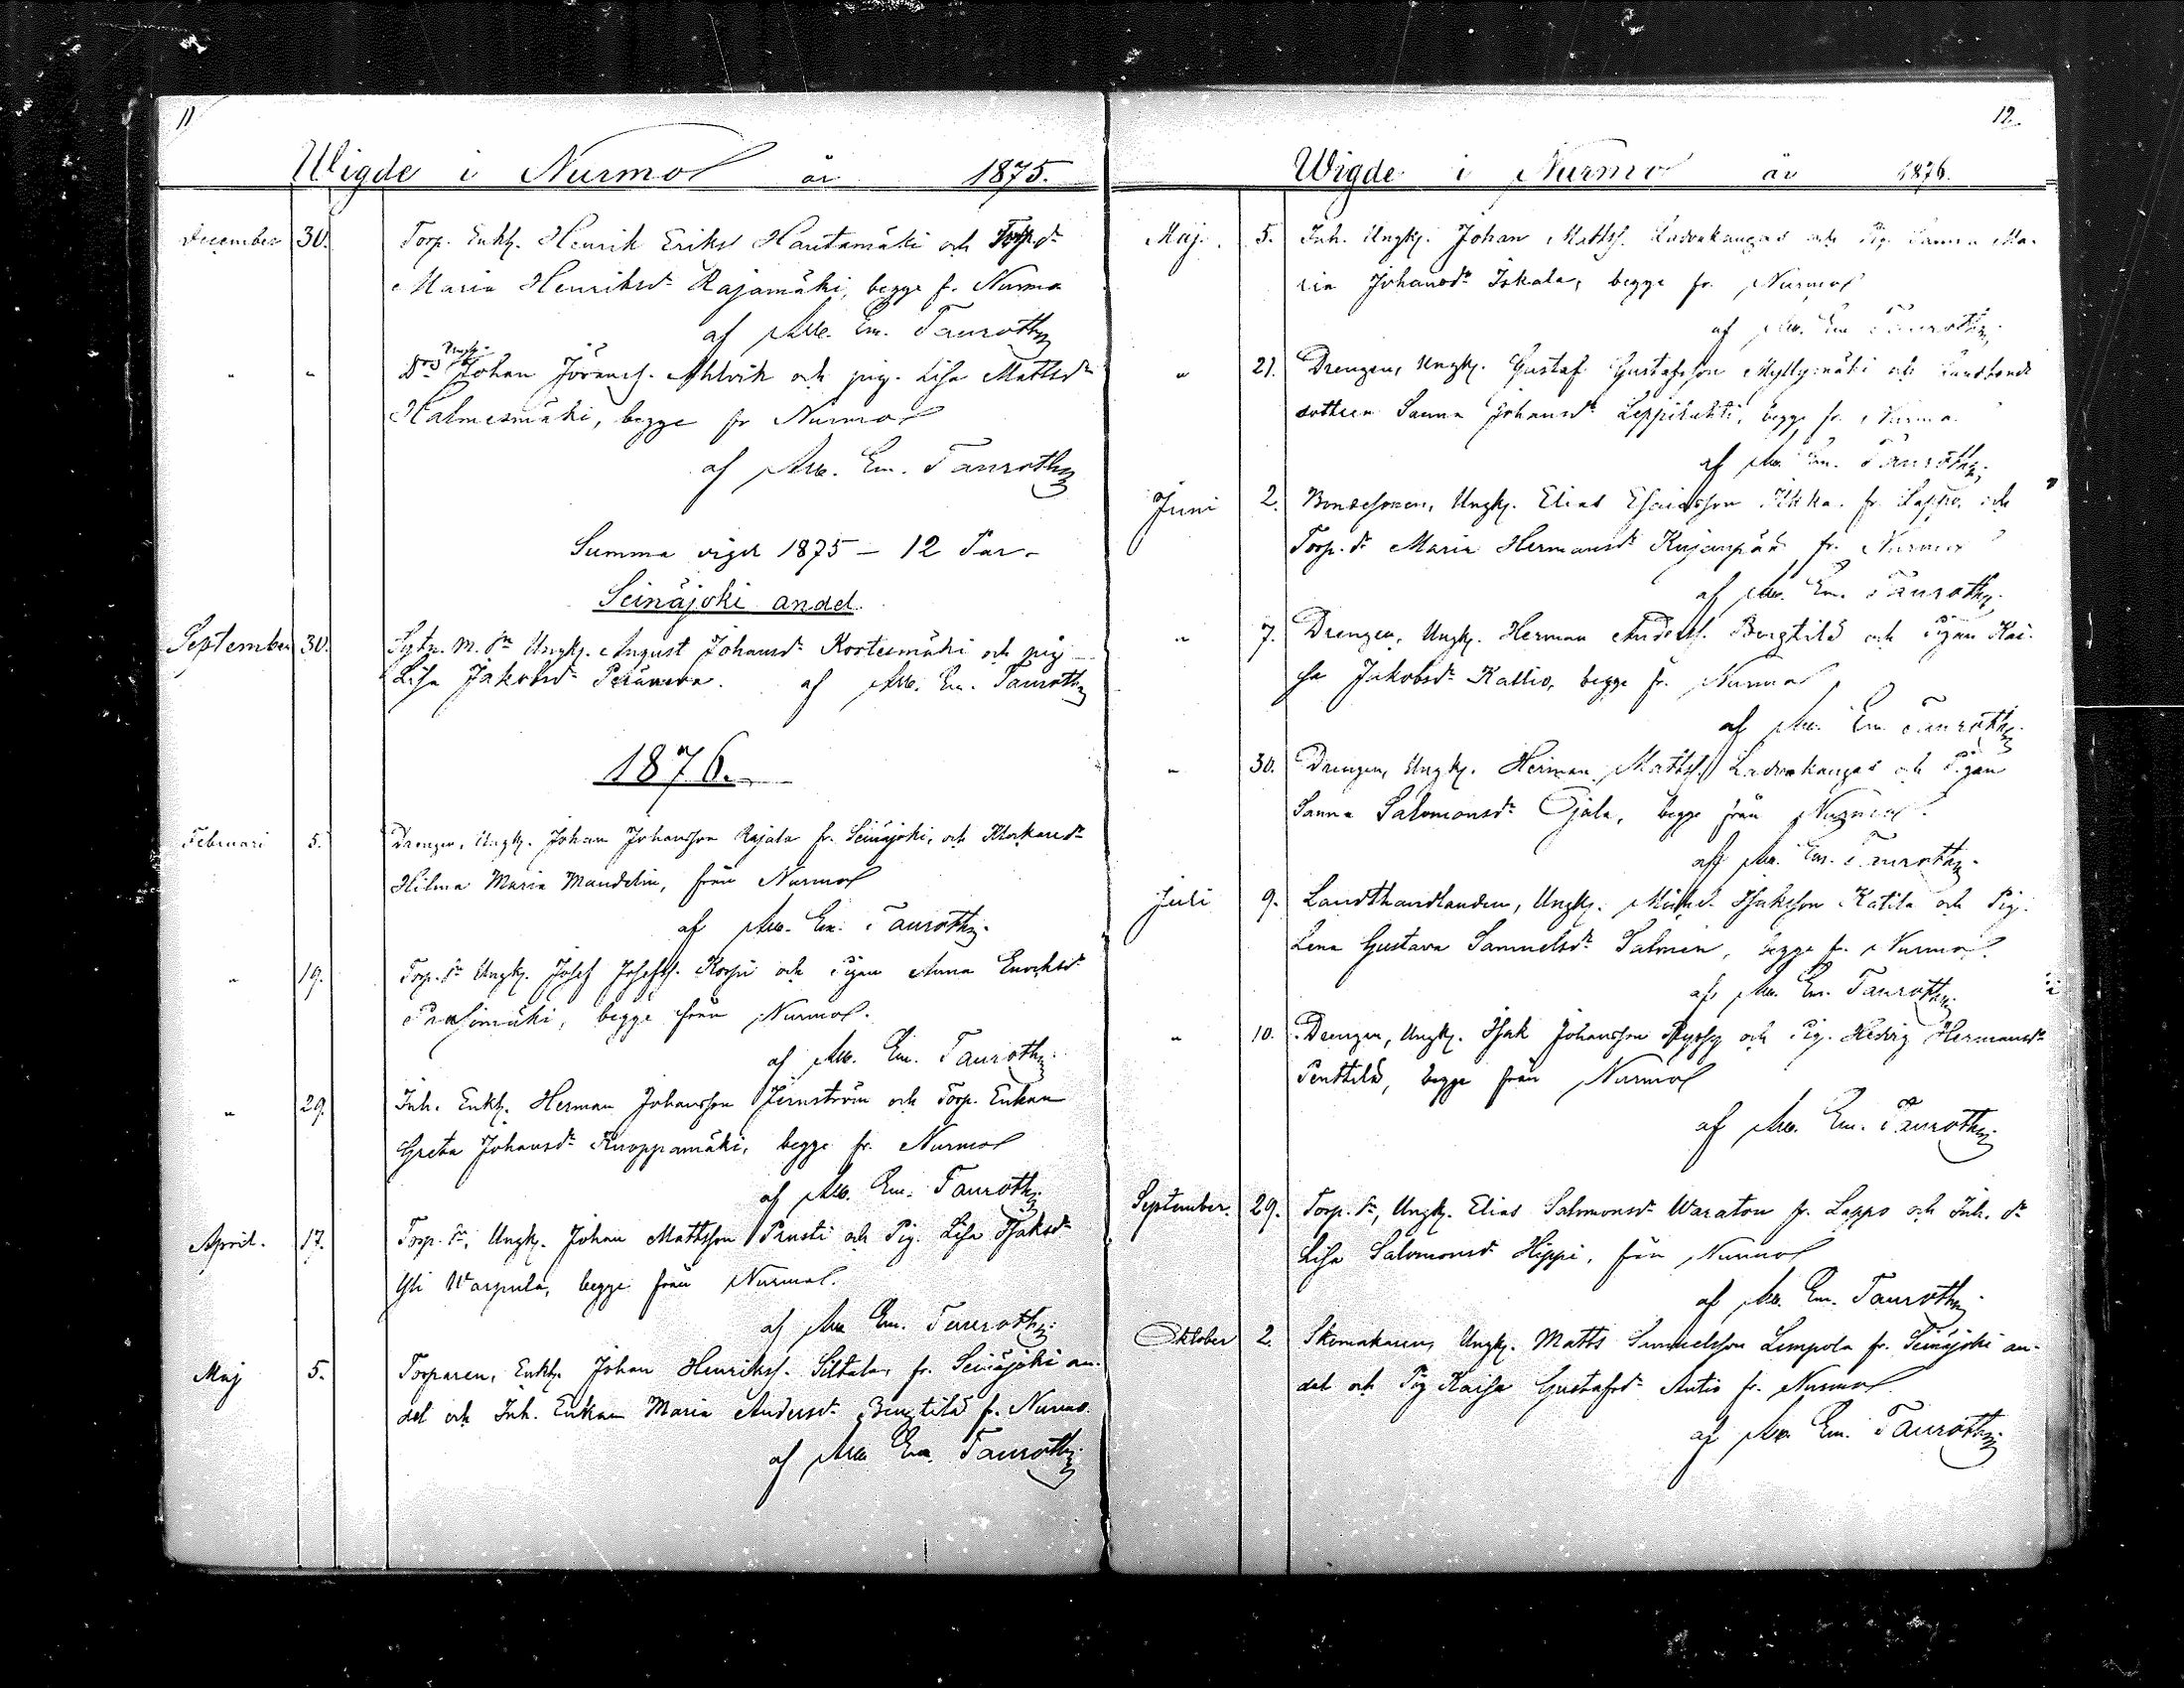 11
Wigde i Nurmo år 1875.
December 30. Torp. Enkl. Henrik Eriks. Hautamäki och Torp.dr
Maria Henriksdr Rajamäki, begge fr. Nurmo
af Alb. Em. Tauroth
" " Johan Göranss. Ahlvik och pig. Lisa Mattsdr
Halmesmäki, begge fr Nurmo
af Alb. Em. Tauroth
Summa vigde 1875 – 12 Par.
Seinäjoki andel.
September 30. Ungk. August Johansd. Kortesmäki och pig
Lisa Jakobsdr af Alb. Em. Tauroth
1876.
Februari 5. Drengen, Ungk. Johan Johansson Rajala fr. Seinäjoki, och Klockaredr
Hilma Maria Mandelin, från Nurmo
af Alb. Em. Tauroth
" 19. Torp. sn Ungk. Josef Josefss. Korpi och Pigan Anna Enochsdr
begge från Nurmo.
af Alb. Em. Tauroth
" 29. Inh. Enkl. Herman Johansson Jernström och Torp. Enkan
Greta Johansdr Knoppamäki, begge fr. Nurmo
af Alb. Em. Tauroth
April. 17. Torp. sn, Ungk. Johan Mattsson Prusti och Pig. Lisa Isaksdr
Yli Warpula, begge från Nurmo.
af Alb Em. Tauroth
Maj 5. Torparen, Enkl. Johan Henrikss. Siltala, fr. Seinäjoki an-
del och Inh. Enkan Maria Andersdr Bengtilä fr. Nurmo.
af Alb Em. Tauroth
12.
Wigde i Nurmo år 1876.
Maj. 5. Inh. Ungk. Johan Mattss. Ladvakangas och Pig. Sanna Ma-
ria Johansdr Iskala, begge fr. Nurmo
af Alb. Em Tauroth
" 21. Drengen, Ungk. Gustaf Gustafsson Myllymäki och Landbonde
dottren Sanna Johansdr Leppilahti, begge fr. Nurmo.
af Alb. Em. Tauroth
Juni 2. Bondesonen, Ungk. Elias Esaiasson Ikka. fr. Lappo och
Torp. dr Maria Hermansdr Kujanpää fr. Nurmo
af Alb. Em. Tauroth
" 7. Drengen, Ungk. Herman Anderss. Bengtilä och Pigan Kai-
sa Jakobsdr Kallio, begge fr. Nurmo
af Alb. Em. Tauroth
" 30. Drengen, Ungk. Herman Mattss. Ladvakangas och Pigan
Sanna Salomonsdr Ojala, begge från Nurmo.
af Alb. Em. Tauroth
Juli 9. Landthandlanden, Ungk. Michel Isaksson Katila och Pig.
Lena Gustava Samuelsdr Salmen, begge fr. Nurmo.
af Alb. Em. Tauroth
" 10. Drengen, Ungk. Isak Johansson Ryssy och Pig. Hedvig Hermansdr
Penttilä, begge från Nurmo
af Alb. Em. Tauroth
September. 29. Torp. sn, Ungk. Elias Salomonsd. Waraton fr. Lappo och Inh. dr
Lisa Salomonsdr Hippi, från Nurmo
af Alb. Em. Tauroth
Oktober 2. Skomakaren, Ungk. Matts Samuelsson Lempola fr. Seinäjoki an-
del och Pig Kaisa Gustafsdr Antio fr. Nurmo.
af Alb. Em. Tauroth